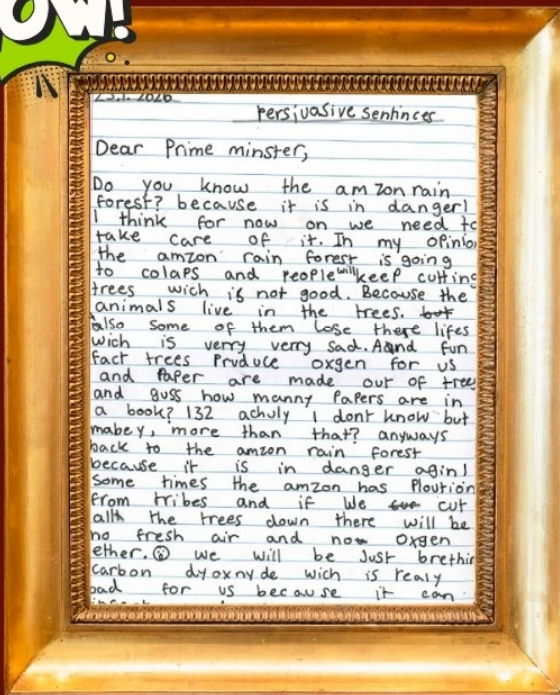 OW!
23.1.2026
Persuasive Sentinces
Dear Prime minster,
Do you know the amzon rain
forest? because it is in danger!
I think for now on we need to
take care of it. In my opinio
the amzon rain forest is going
to colaps and people will keep cutting
trees wich is not good. Because the
animals live in the trees. but
also some of them lose there lifes
wich is verry verry sad. Aand fun
fact trees Prvduce oxgen for us
and Paper are made out of tree
and guss how manny Papers are in
a book? 132 achuly I dont know but
mabey, more than that? anyways
back to the amzon rain forest
because it is in danger agin!
Some times the amzon has Ploution
from tribes and if we cut
all the trees down there will be
no fresh air and no oxgen
ether. we will be Just brethin
Carbon dyoxnyde wich is realy
bad for us because it can